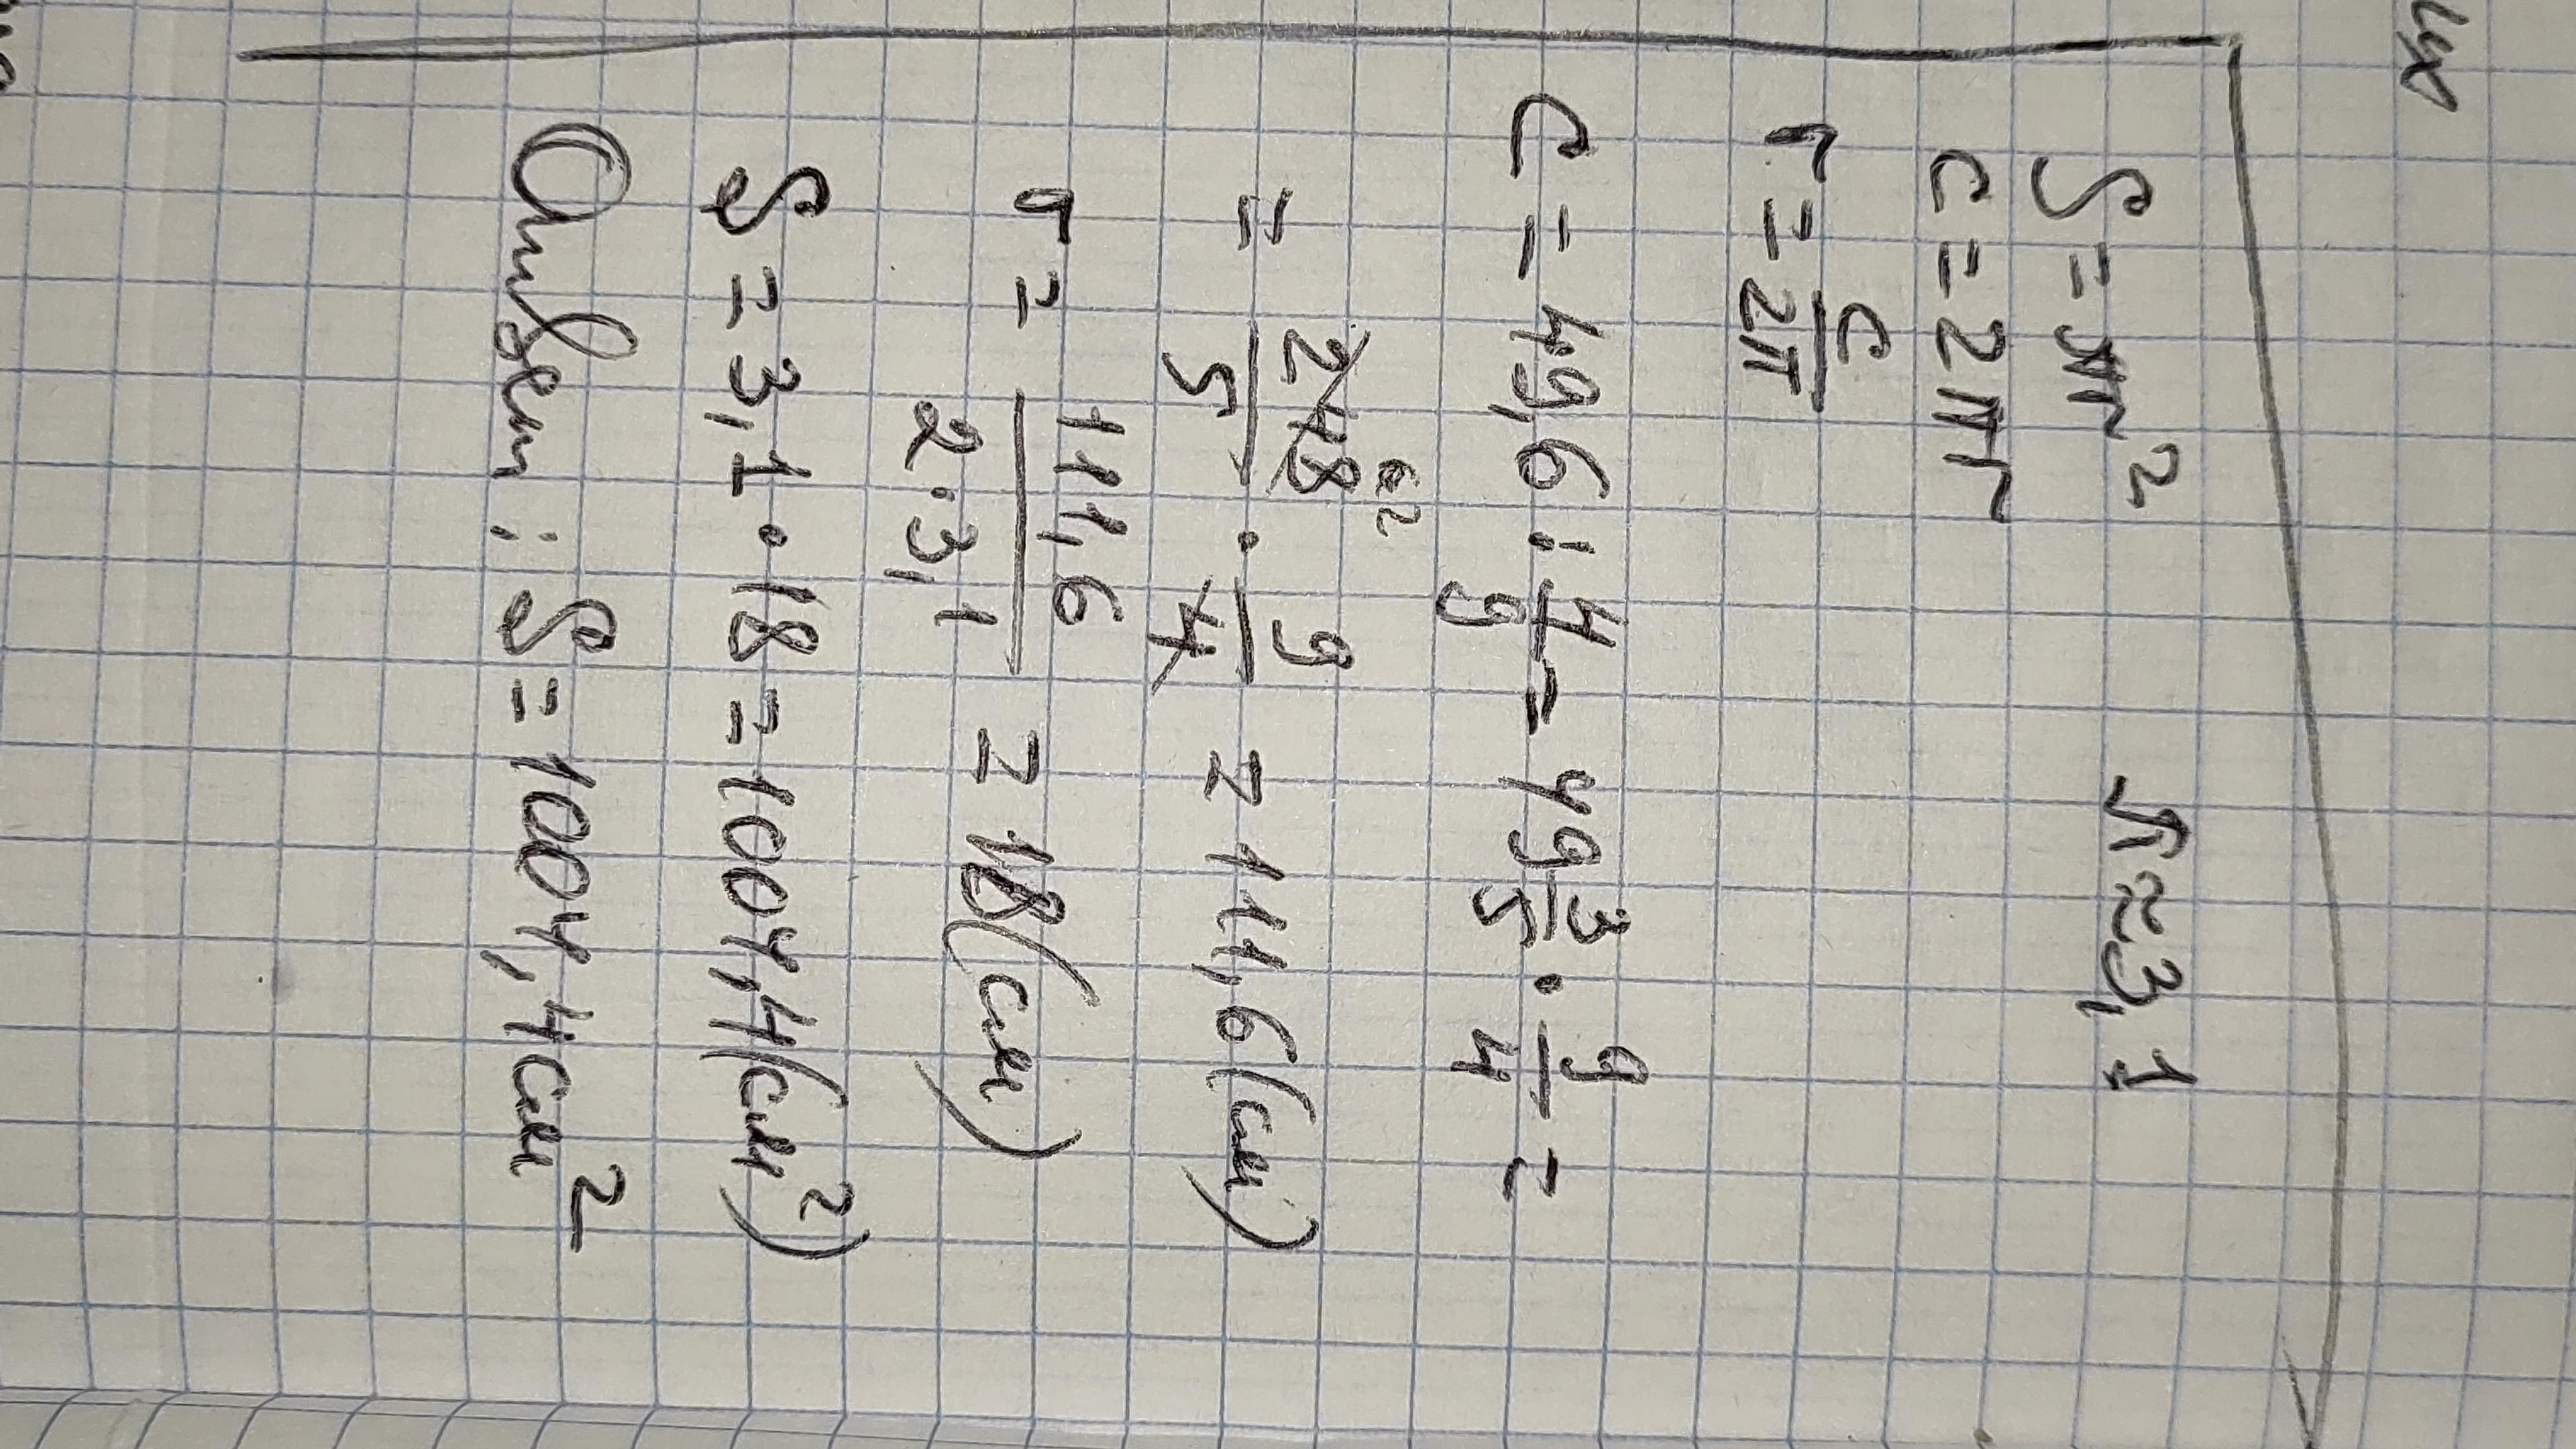 S = πr² π ≈ 3,1
C = 2πr
r = C/2π
C = 49,6 : 4/9 = 49 3/5 · 9/4 =
= 248/5 · 9/4 = 111,6 (см)
62
r = 111,6/2·3,1 = 18 (см)
S = 3,1 · 18 = 1004,4 (см²)
Ответ: S = 1004,4 см²